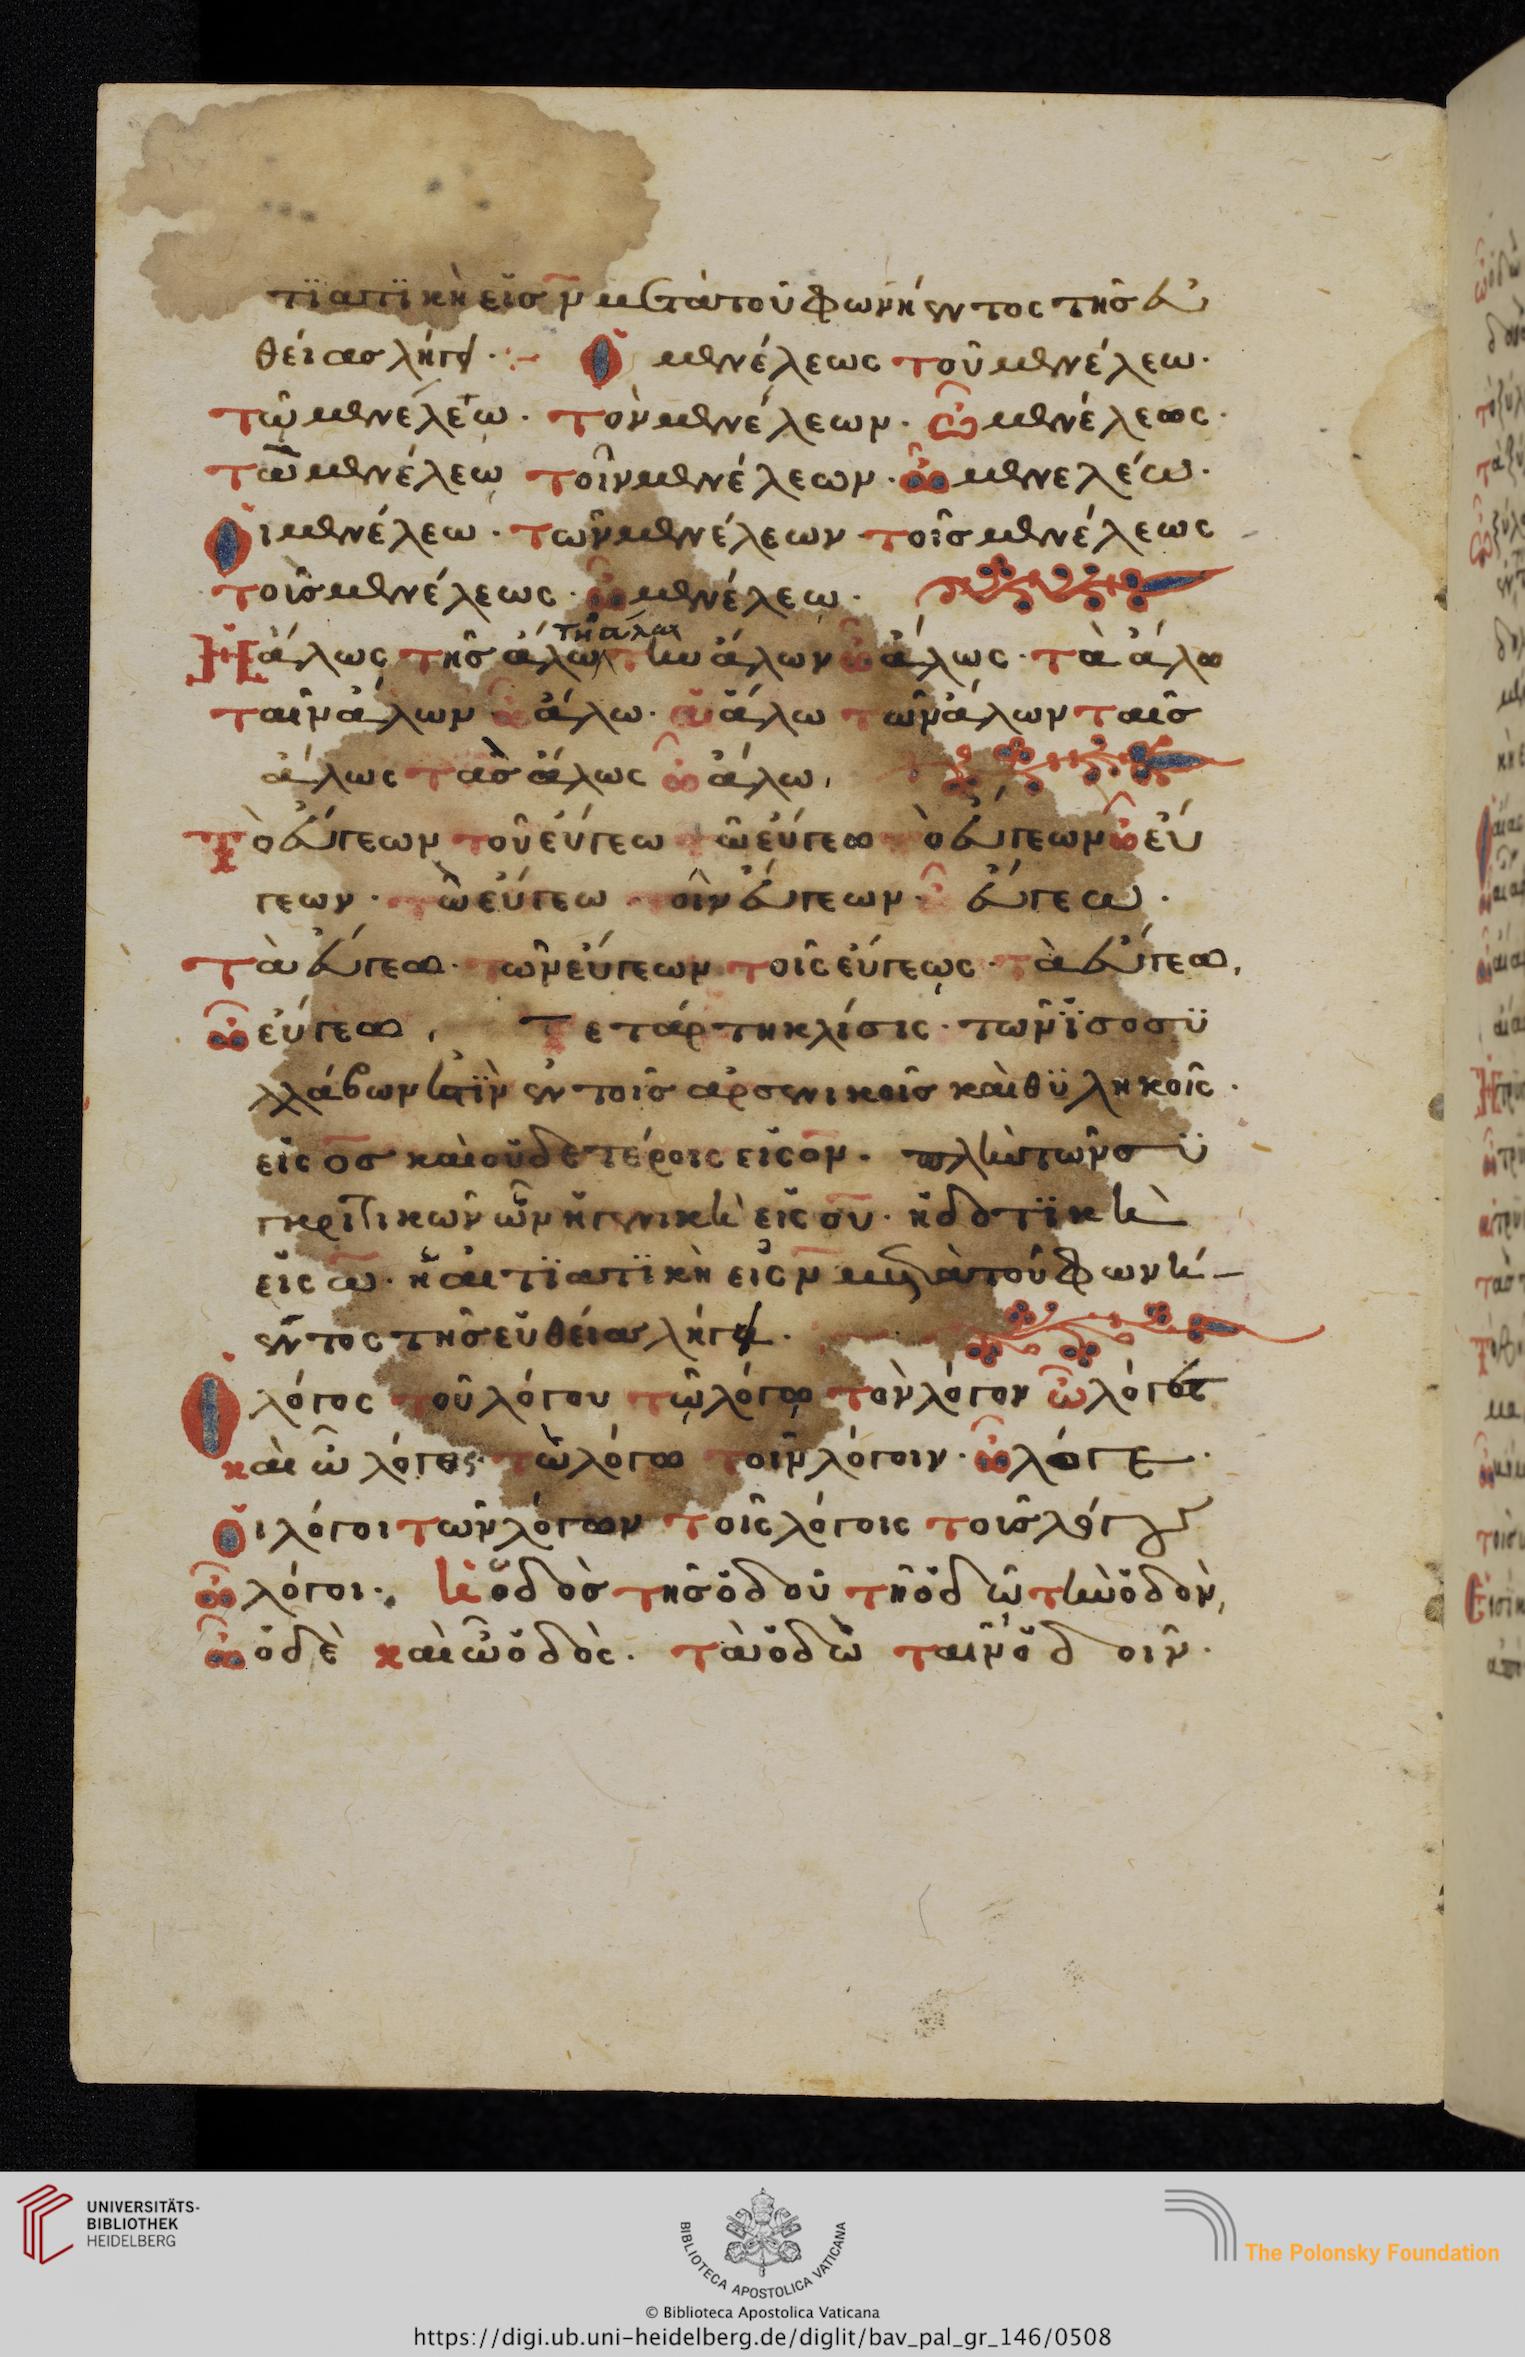 τϊατϊκὴ εἰσ ν̅ μετὰ τοῦ φωνήεντος τῆσ εὐ
θείασ λήγει· Ὁ μενέλεως τοῦ μενέλεω·
τῶ μενέλεῳ· τὸν μενέλεων· ὦ μενέλεως·
τὼ μενέλεω τοῖν μενέλεων· ὦ μενελέω·
Οἱ μενέλεω· τῶν μενέλεων τοῖσ μενέλεως
τοῖσ μενέλεως· ὦ μενέλεῳ·
τῆ άλω
Ἡ ἅλως τῆσ ἅλω τὴν ἅλων ὦ ἅλως· τὰ ἅλω
ταῖν ἅλων ὦ ἅλω· αἱ ἅλω τῶν ἅλων ταῖσ
ἅλως τὰσ ἅλως ὦ ἅλω,
Τὸ εὔγεων τοῦ εὔγεω τῶ εὔγεω τὸ εὔγεων ὦ εὔ
γεων· τὼ εὔγεω τοῖν εὔγεων· ὦ εὔγεω·
Τὰ εὔγεω· τῶν εὔγεων τοῖς εὔγεως· τὰ εὔγεω,
ὦ εὔγεω, Τετάρτη κλίσις· τῶν ἰσοσϋ
λλάβων ἐστϊν ἐν τοῖσ ἀρσενικοῖσ καὶ θϋληκοῖς·
εἰς ο̅σ̅ καὶ οὐδετέροις εἰς ο̅ν̅· πλὴν τῶν σϋ
γκριτικῶν ὧν ἡ γενικὴ εἰς ο̅υ̅· ἡ δοτϊκὴ
εἰς ω̅· ἡ αιτϊατϊκὴ εἰς ν̅ μετὰ τοῦ φωνή–
εντος τῆσ εὐθείασ λήγει·
Ὁ λόγος τοῦ λόγου τῶ λόγω τὸν λόγον ὦ λόγε
καὶ ὦ λόγος· τὼ λόγω τοῖν λόγοιν· ὦ λόγε·
Οἱ λόγοι τῶν λόγων τοῖς λόγοις τοὺσ λόγους
ὦ λόγοι· ἡ ὁδὸσ τῆσ ὁδοῦ τῆ ὁδῶ τὴν ὁδὸν,
ὦ ὁδὲ καὶ ὦ ὁδὸς· τὰ ὁδὼ ταῖν ὁδοῖν·
UNIVERSITÄTS-
BIBLIOTHEK
HEIDELBERG
BIBLIOTECA APOSTOLICA VATICANA
The Polonsky Foundation
© Biblioteca Apostolica Vaticana
https://digi.ub.uni-heidelberg.de/diglit/bav_pal_gr_146/0508